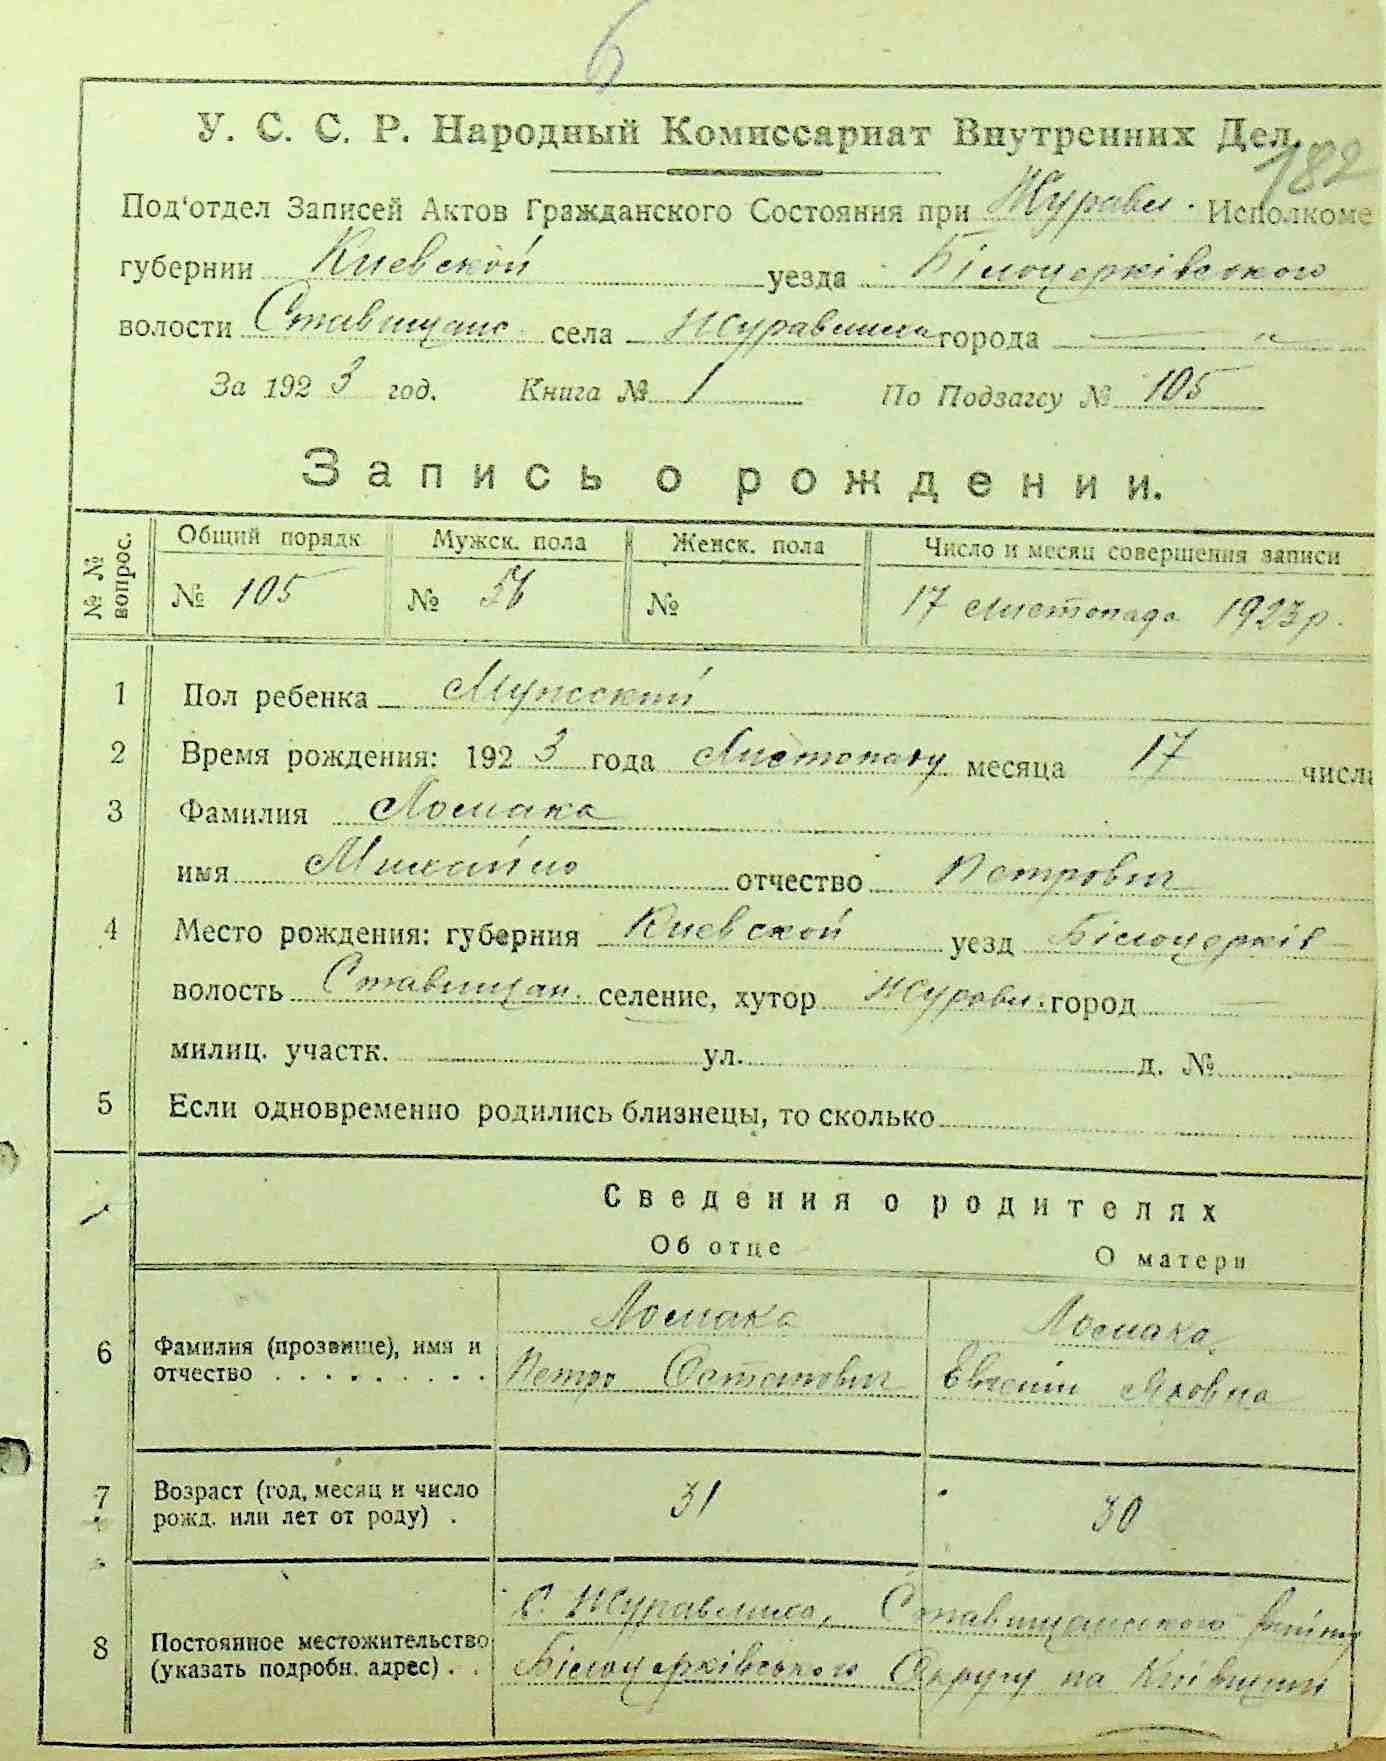 6
У. С. С. Р. Народный Комиссариат Внутренних Дел.
182
Под‘отдел Записей Актов Гражданского Состояния при Журавл. Исполкоме
губернии Киевской уезда Білоцерківського
волости Ставищанс. села Журавлиха города — „
За 1923 год. Книга № 1 По Подзагсу № 105
Запись о рождении.
№ № вопрос. Общий порядк Мужск. пола Женск. пола Число и месяц совершения записи
№ 105 № 56 № 17 Листопада 1923 р.
1 Пол ребенка Мужский
2 Время рождения: 1923 года Листопаду месяца 17 числа
3 Фамилия Ломака
имя Михайло отчество Петрович
4 Место рождения: губерния Киевской уезд Білоцерків
волость Ставищан. селение, хутор Журавл. город —
милиц. участк. ул. д. №
5 Если одновременно родились близнецы, то сколько
Сведения о родителях
Об отце О матери
Ломака Ломака
6 Фамилия (прозвище), имя и
отчество . . . . . . . . . Петро Остапович Євгенія Яковна
7 Возраст (год, месяц и число
рожд. или лет от роду) . 31 30
С. Журавлиха, Ставищанського району
8 Постоянное местожительство
(указать подробн. адрес) . . Білоцерківського Округу на Київщині